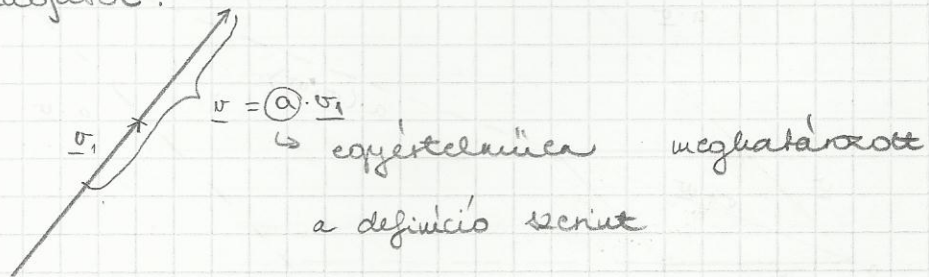 v = a · v₁
v₁
↳ egyértelműen meghatározott
a definíció szerint